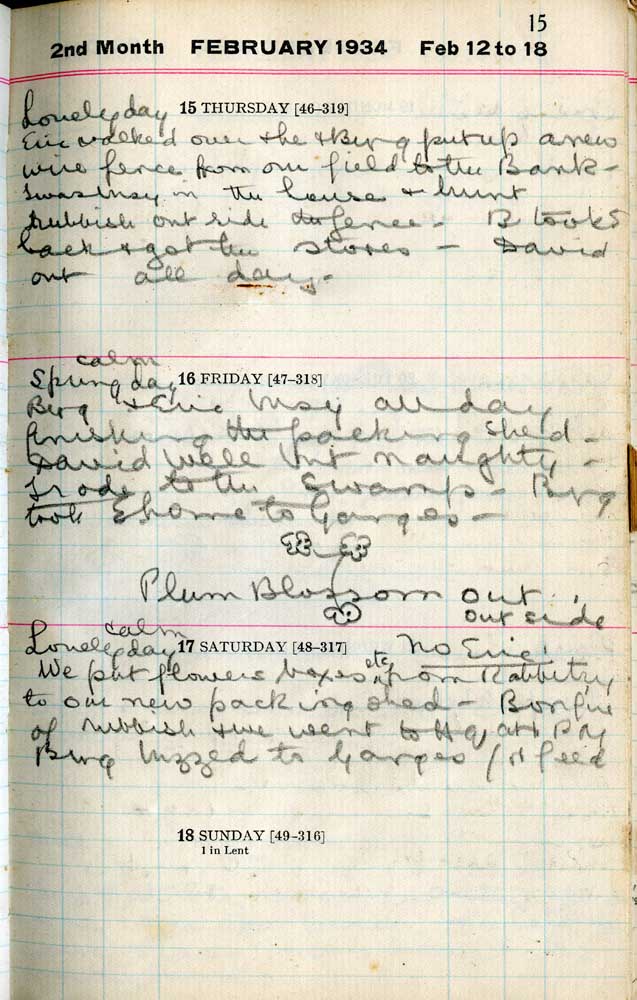 15
2nd Month FEBRUARY 1934 Feb 12 to 18
Lovely day 15 THURSDAY [46–319]
Eric walked over & he & Byng put up a new
wire fence from our field to the Bank –
I was busy in the house & burnt
rubbish out side the fence – B took S
back & got the stores – David
out all day –
calm
Spring day 16 FRIDAY [47–318]
Byng & Eric busy all day
finishing the packing shed –
David well but naughty –
I rode to the Swamp – Byng
took E home to Garges –
Plum Blossom out
out side
calm
Lovely day 17 SATURDAY [48–317] No Eric!
We put flowers boxes etc from Rabbitry
to our new packing shed – Bonfire
of rubbish & we went to at
Byng buzzed to Garges for feed
18 SUNDAY [49–316]
1 in Lent